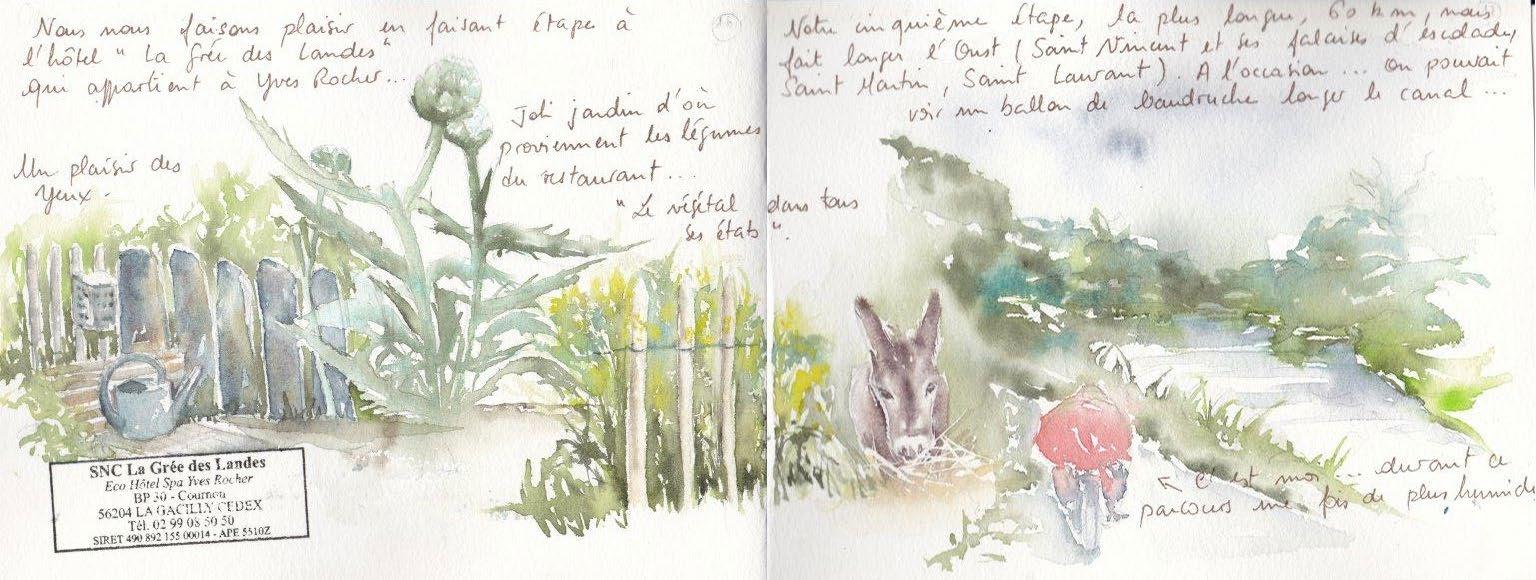 Nous nous faisons plaisir en faisant étape à
l'hôtel " La Grée des Landes "
qui appartient à Yves Rocher...
Un plaisir des
Yeux.
Joli jardin d'où
proviennent les légumes
du restaurant...
" Le végétal dans tous
ses états ".
SNC La Grée des Landes
Eco Hôtel Spa Yves Rocher
BP 30 - Cournon
56204 LA GACILLY CEDEX
Tél. 02 99 08 50 50
SIRET 490 892 155 00014 - APE 5510Z
Notre cinquième étape, la plus longue, 60 km, nous
fait longer l'Oust ( Saint Vincent et ses falaises d'escalade,
Saint Martin, Saint Laurant ). A l'occasion... on pouvait
voir un ballon de baudruche longer le canal...
← c'est moi... durant ce
parcours une fois de plus humide